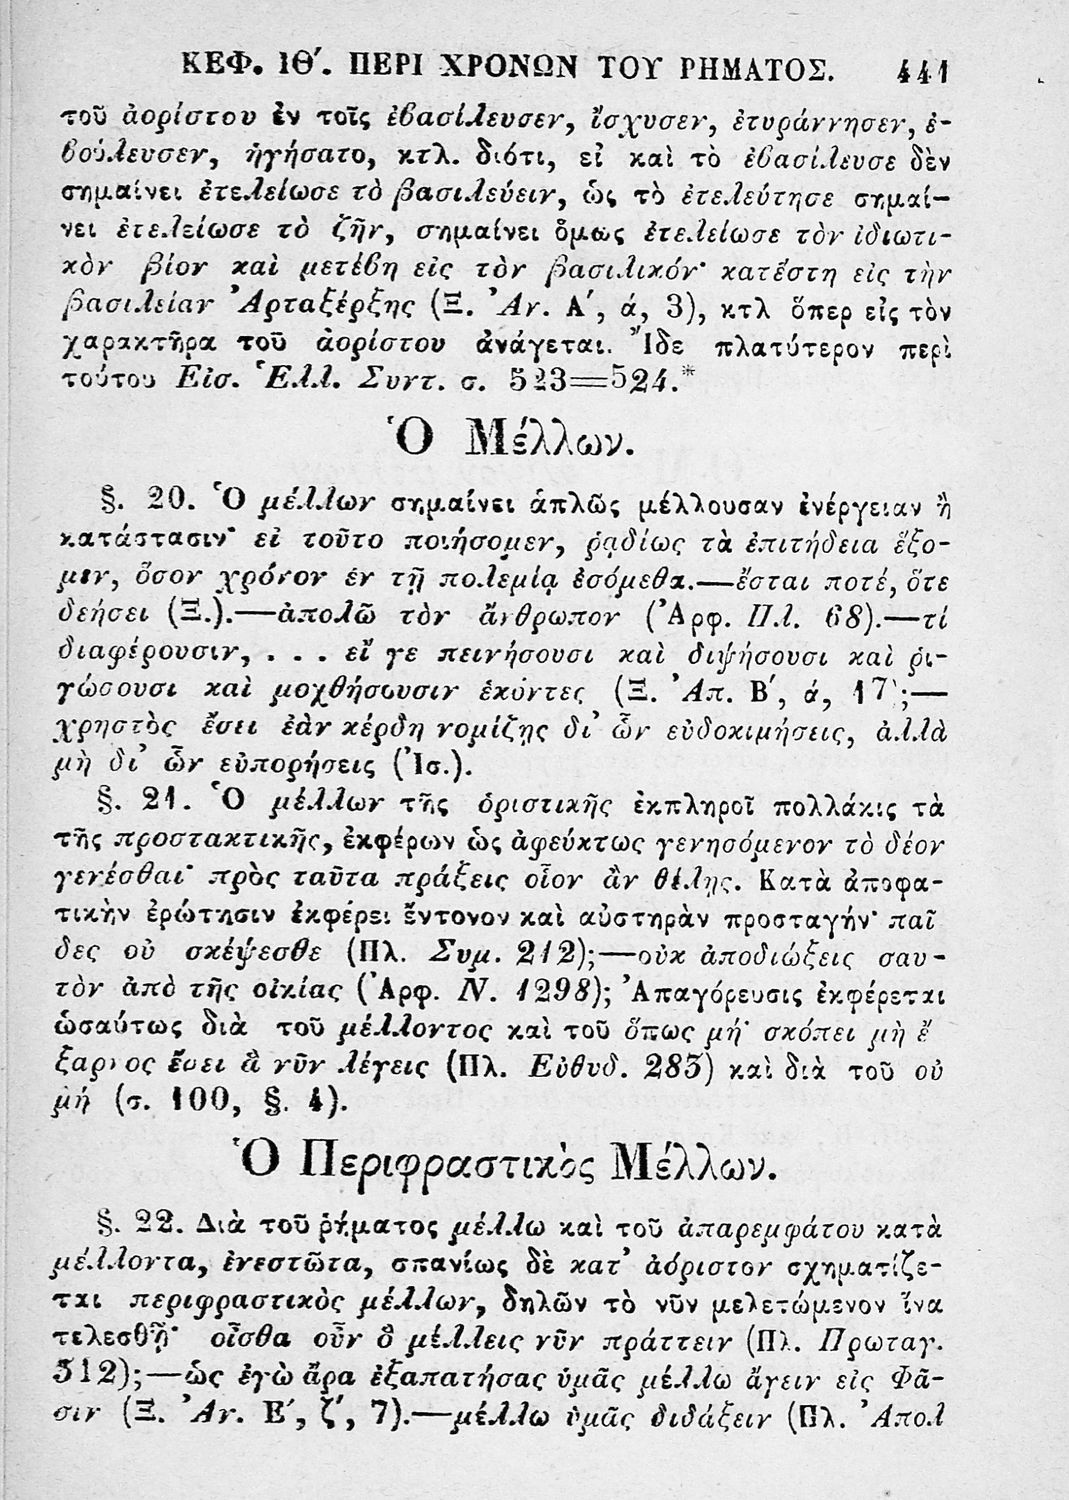 ΚΕΦ. ΙΘ'. ΠΕΡΙ ΧΡΟΝΩΝ ΤΟΥ ΡΗΜΑΤΟΣ. 441
τοῦ ἀορίστου ἐν τοῖς ἐβασίλευσεν, ἴσχυσεν, ἐτυράννησεν, ἐ-
βούλευσεν, ἡγήσατο, κτλ. διότι, εἰ καὶ τὸ ἐβασίλευσε δὲν
σημαίνει ἐτελείωσε τὸ βασιλεύειν, ὡς τὸ ἐτελεύτησε σημαί-
νει ἐτελείωσε τὸ ζῆν, σημαίνει ὅμως ἐτελείωσε τὸν ἰδιωτι-
κὸν βίον καὶ μετέβη εἰς τὸν βασιλικόν· κατέστη εἰς τὴν
βασιλείαν Ἀρταξέρξης (Ξ. Ἀν. Α', ά, 3), κτλ ὅπερ εἰς τὸν
χαρακτῆρα τοῦ ἀορίστου ἀνάγεται. Ἴδε πλατύτερον περὶ
τούτου Εἰσ. Ἑλλ. Συντ. σ. 523=524.*
Ὁ Μέλλων.
§. 20. Ὁ μέλλων σημαίνει ἁπλῶς μέλλουσαν ἐνέργειαν ἢ
κατάστασιν· εἰ τοῦτο ποιήσομεν, ῥᾳδίως τὰ ἐπιτήδεια ἕξο-
μεν, ὅσον χρόνον ἐν τῇ πολεμίᾳ ἐσόμεθα.—ἔσται ποτέ, ὅτε
δεήσει (Ξ.).—ἀπολῶ τὸν ἄνθρωπον (Ἀρφ. Πλ. 68).—τί
διαφέρουσιν, . . . εἴ γε πεινήσουσι καὶ διψήσουσι καὶ ῥι-
γώσουσι καὶ μοχθήσουσιν ἑκόντες (Ξ. Ἀπ. Β', ά, 17);—
χρηστὸς ἔσει ἐὰν κέρδη νομίζῃς δι' ὧν εὐδοκιμήσεις, ἀλλὰ
μὴ δι' ὧν εὐπορήσεις (Ἰσ.).
§. 21. Ὁ μέλλων τῆς ὁριστικῆς ἐκπληροῖ πολλάκις τὰ
τῆς προστακτικῆς, ἐκφέρων ὡς ἀφεύκτως γενησόμενον τὸ δέον
γενέσθαι· πρὸς ταῦτα πράξεις οἷον ἂν θέλῃς. Κατὰ ἀποφα-
τικὴν ἐρώτησιν ἐκφέρει ἔντονον καὶ αὐστηρὰν προσταγήν· παῖ
δες οὐ σκέψεσθε (Πλ. Συμ. 212);—οὐκ ἀποδιώξεις σαυ-
τὸν ἀπὸ τῆς οἰκίας (Ἀρφ. Ν. 1298); Ἀπαγόρευσις ἐκφέρεται
ὡσαύτως διὰ τοῦ μέλλοντος καὶ τοῦ ὅπως μή· σκόπει μὴ ἔ
ξαρνος ἔσει ἃ νῦν λέγεις (Πλ. Εὐθυδ. 283) καὶ διὰ τοῦ οὐ
μή (σ. 100, §. 4).
Ὁ Περιφραστικὸς Μέλλων.
§. 22. Διὰ τοῦ ῥήματος μέλλω καὶ τοῦ ἀπαρεμφάτου κατὰ
μέλλοντα, ἐνεστῶτα, σπανίως δὲ κατ' ἀόριστον σχηματίζε-
ται περιφραστικὸς μέλλων, δηλῶν τὸ νῦν μελετώμενον ἵνα
τελεσθῇ· οἶσθα οὖν ὃ μέλλεις νῦν πράττειν (Πλ. Πρωταγ.
312);—ὡς ἐγὼ ἄρα ἐξαπατήσας ὑμᾶς μέλλω ἄγειν εἰς Φᾶ-
σιν (Ξ. Ἀν. Ε', ζ', 7).—μέλλω ὑμᾶς διδάξειν (Πλ. Ἀπολ